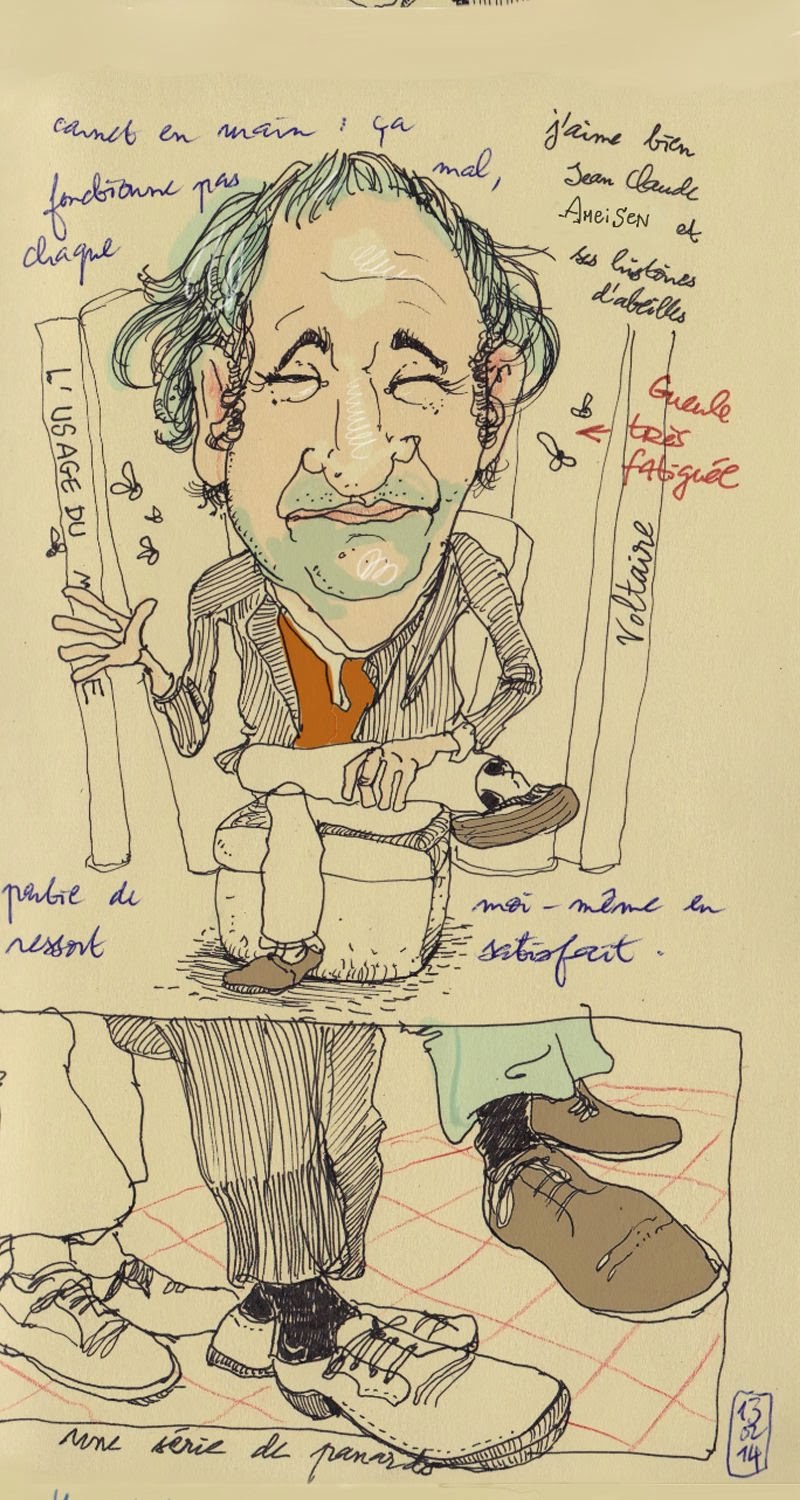 carnet en main : ça
fonctionne pas mal,
chaque
j'aime bien
Jean Claude
AMEiSEN et
ses histoires
d'abeilles
Gueule
très
fatiguée
L'USAGE DU M
E
Voltaire
partie de
ressort
moi-même en
satisfait.
une série de panards
13
02
14